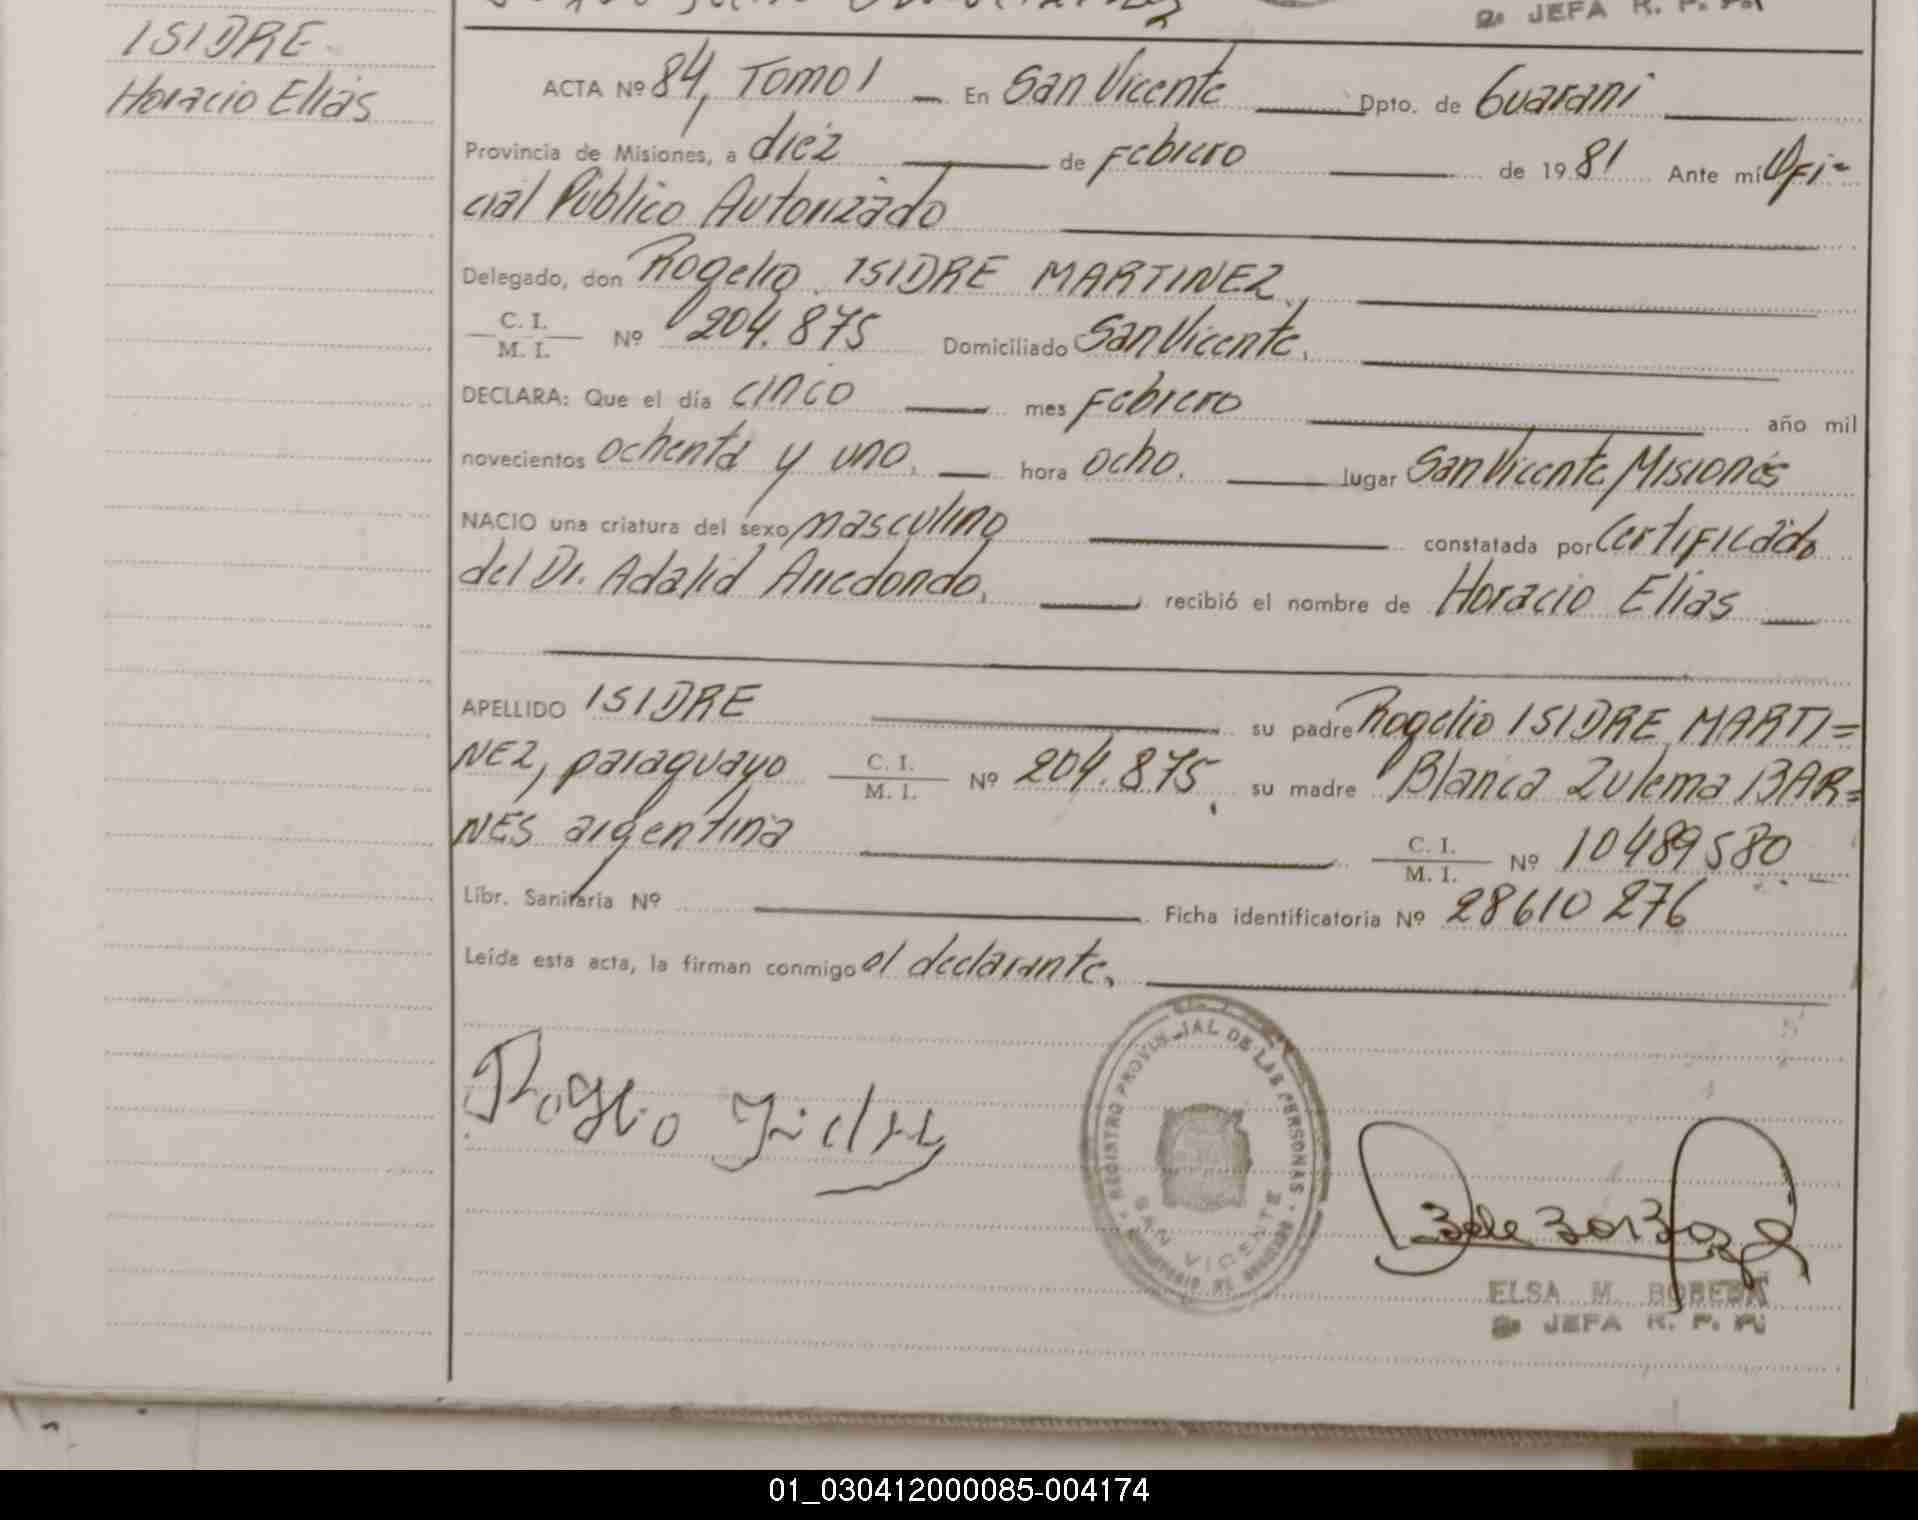 ISIDRE
Horacio Elias
2a JEFA R. P. P.
ACTA Nº 84, Tomo I En San Vicente Dpto. de Guarani
Provincia de Misiones, a diez de Febrero de 1981 Ante mí Ofi-
cial Público Autorizado
Delegado, don Rogelio ISIDRE MARTINEZ,
C. I.
M. I. Nº 204.875 Domiciliado San Vicente,
DECLARA: Que el día cinco mes Febrero año mil
novecientos ochenta y uno, hora ocho. lugar San Vicente Misiones
NACIO una criatura del sexo masculino constatada por Certificado
del Dr. Adalid Arredondo, recibió el nombre de Horacio Elias
APELLIDO ISIDRE su padre Rogelio ISIDRE MARTI=
NEZ, paraguayo C. I.
M. I. Nº 204.875, su madre Blanca Zulema BAR=
NES argentina C. I.
M. I. Nº 10489580
Libr. Sanitaria Nº Ficha identificatoria Nº 28610276
Leída esta acta, la firman conmigo el declarante,
Rogelio Isidre
REGISTRO PROVINCIAL DE LAS PERSONAS
SAN VICENTE
ELSA M. BOBEDA
2a JEFA R. P. P.
01_030412000085-004174